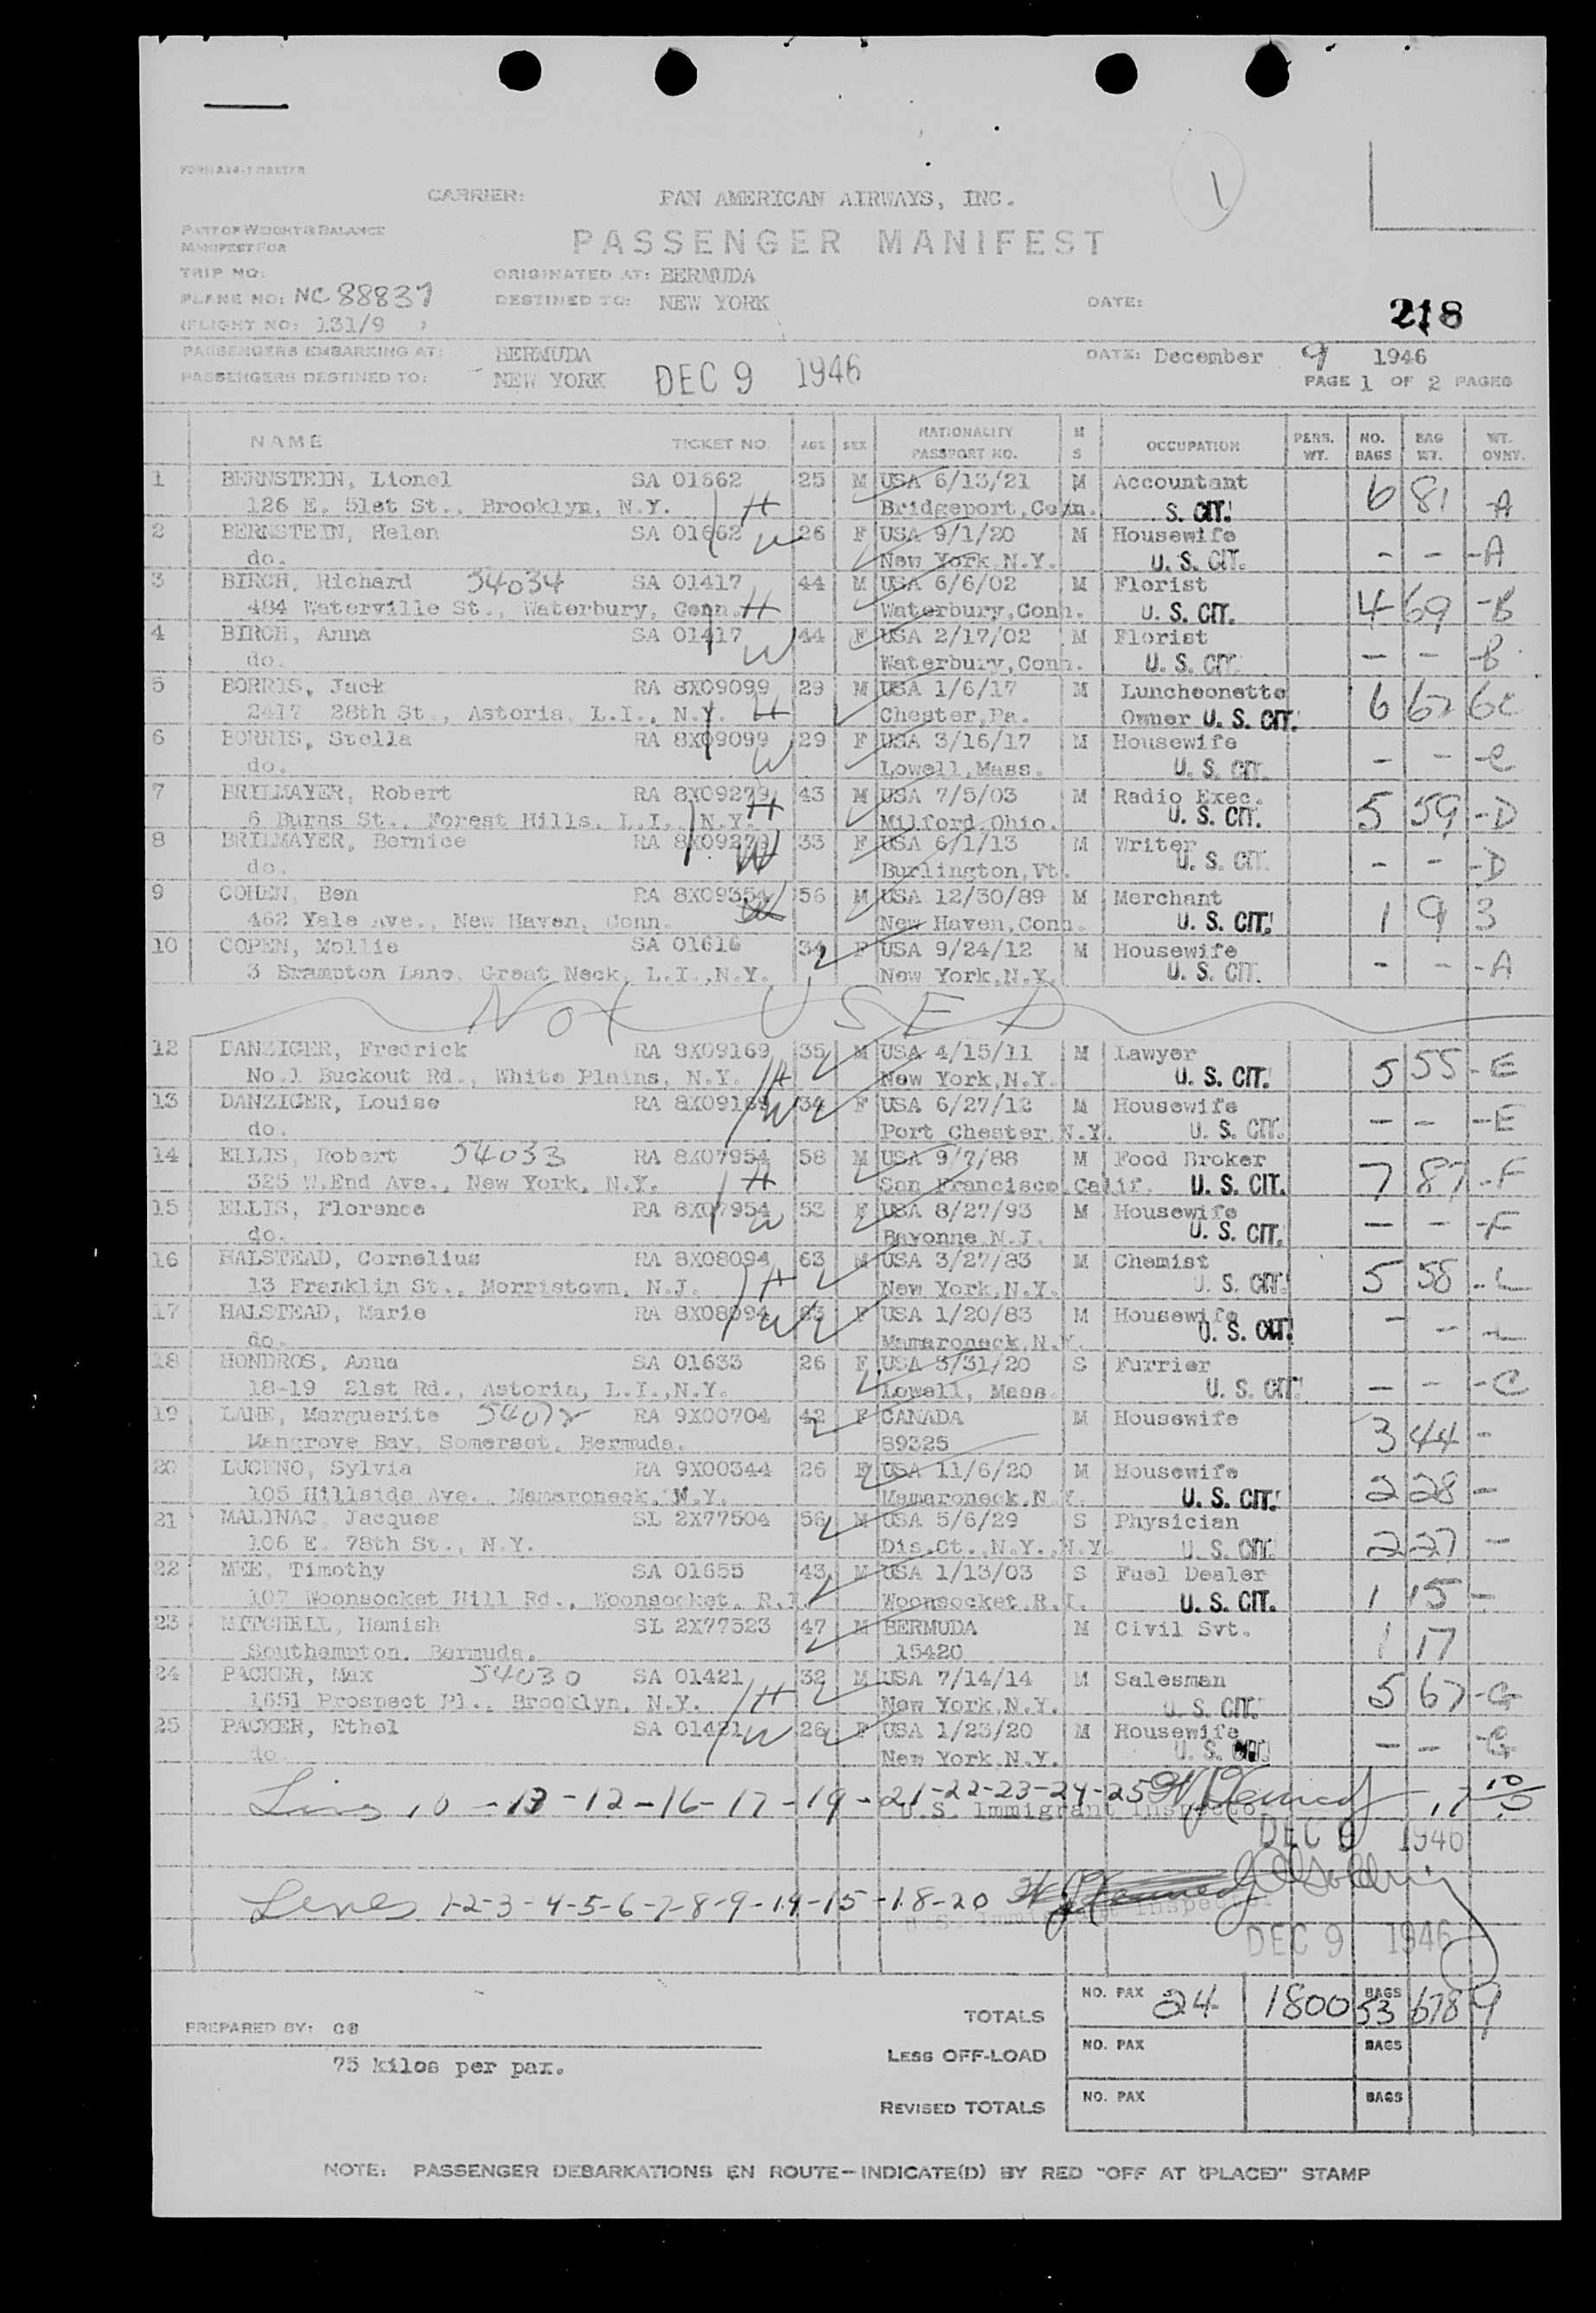 FORM A&S-1 MASTER
CARRIER: PAN AMERICAN AIRWAYS, INC.
1
PART OF WEIGHT & BALANCE
MANIFEST FOR
PASSENGER MANIFEST
TRIP NO: ORIGINATED AT: BERMUDA
PLANE NO: NC 88837 DESTINED TO: NEW YORK DATE: 218
(FLIGHT NO: 131/9 )
PASSENGERS EMBARKING AT: BERMUDA DATE: December 9 1946
PASSENGERS DESTINED TO: NEW YORK DEC 9 1946 PAGE 1 OF 2 PAGES
NAME TICKET NO. AGE SEX NATIONALITY PASSPORT NO. M S OCCUPATION PERS. WT. NO. BAGS BAG WT. WT. OVNT.
1 BERNSTEIN, Lionel SA 01662 25 M USA 6/13/21 M Accountant 6 81 -A
126 E. 51st St., Brooklyn, N.Y. H Bridgeport, Conn. S. CIT.
2 BERNSTEIN, Helen SA 01662 W 26 F USA 9/1/20 M Housewife - - -A
do. New York, N.Y. U. S. CIT.
3 BIRCH, Richard 54034 SA 01417 44 M USA 6/6/02 M Florist 4 69 -B
484 Waterville St., Waterbury, Conn. H Waterbury, Conn. U. S. CIT.
4 BIRCH, Anna SA 01417 W 44 F USA 2/17/02 M Florist - - -B
do. Waterbury, Conn. U. S. CIT.
5 BORRIS, Jack RA 8X09099 29 M USA 1/6/17 M Luncheonette 6 67 6C
2417 28th St., Astoria, L.I., N.Y. H Chester, Pa. Owner U. S. CIT.
6 BORRIS, Stella RA 8X09099 29 F USA 3/16/17 M Housewife - - -C
do. W Lowell, Mass. U. S. CIT.
7 BRILMAYER, Robert RA 8X09279 43 M USA 7/5/03 M Radio Exec. 5 59 -D
6 Burns St., Forest Hills, L.I., N.Y. H Milford, Ohio. U. S. CIT.
8 BRILMAYER, Bernice RA 8X09279 33 F USA 6/1/13 M Writer - - -D
do. W Burlington, Vt. U. S. CIT.
9 COHEN, Ben RA 8X09354 56 M USA 12/30/89 M Merchant 1 9 3
462 Yale Ave., New Haven, Conn. New Haven, Conn. U. S. CIT.
10 COPEN, Mollie SA 01616 34 F USA 9/24/12 M Housewife - - -A
3 Brampton Lane, Great Neck, L.I., N.Y. New York, N.Y. U. S. CIT.
NOT USED
12 DANZIGER, Fredrick RA 8X09169 35 M USA 4/15/11 M Lawyer 5 55 -E
No.1 Buckout Rd., White Plains, N.Y. H New York, N.Y. U. S. CIT.
13 DANZIGER, Louise RA 8X09169 W 34 F USA 6/27/12 M Housewife - - -E
do. Port Chester, N.Y. U. S. CIT.
14 ELLIS, Robert 54033 RA 8X07954 58 M USA 9/7/88 M Food Broker 7 87 -F
325 W.End Ave., New York, N.Y. H San Francisco, Calif. U. S. CIT.
15 ELLIS, Florence RA 8X07954 W 53 F USA 8/27/93 M Housewife - - -F
do. Bayonne, N.J. U. S. CIT.
16 HALSTEAD, Cornelius RA 8X08094 63 M USA 3/27/83 M Chemist 5 58 -L
13 Franklin St., Morristown, N.J. H New York, N.Y. U. S. CIT.
17 HALSTEAD, Marie RA 8X08094 W 63 F USA 1/20/83 M Housewife - - -L
do. Mamaroneck, N.Y. U. S. CIT.
18 HONDROS, Anna SA 01633 26 F USA 3/31/20 S Furrier - - -C
18-19 21st Rd., Astoria, L.I., N.Y. Lowell, Mass. U. S. CIT.
19 LANE, Marguerite RA 9X00704 42 F CANADA M Housewife 3 44 -
Mangrove Bay, Somerset, Bermuda. 89325
20 LUCENO, Sylvia RA 9X00344 26 F USA 11/6/20 M Housewife 2 28 -
105 Hillside Ave., Mamaroneck, N.Y. Mamaroneck, N.Y. U. S. CIT.
21 MALINAC, Jacques SL 2X77504 56 M USA 5/6/29 S Physician 2 27 -
106 E. 78th St., N.Y. Dis.Ct.,N.Y.,N.Y. U. S. CIT.
22 MEE, Timothy SA 01655 43 M USA 1/13/03 S Fuel Dealer 1 15 -
107 Woonsocket Hill Rd., Woonsocket, R.I. Woonsocket, R.I. U. S. CIT.
23 MITCHELL, Hamish SL 2X77523 47 M BERMUDA M Civil Svt. 1 17
Southampton, Bermuda. 15420
24 PACKER, Max 54030 SA 01421 32 M USA 7/14/14 M Salesman 5 67 -G
1651 Prospect Pl., Brooklyn, N.Y. H New York, N.Y. U. S. CIT.
25 PACKER, Ethel SA 01421 W 26 F USA 1/23/20 M Housewife - - -G
do. New York, N.Y. U. S. CIT.
Lines 10 -13 -12 -16 -17 -19 -21-22-23-24-25
U.S. Immigrant Inspector
DEC 9 1946
Lines 1-2-3-4-5-6-7-8-9-14-15-18-20
U.S. Immigrant Inspector
DEC 9 1946
TOTALS NO. PAX 24 1800 BAGS 53 678 9
PREPARED BY: CB
LESS OFF-LOAD NO. PAX BAGS
75 kilos per pax.
REVISED TOTALS NO. PAX BAGS
NOTE: PASSENGER DEBARKATIONS EN ROUTE-INDICATE(D) BY RED "OFF AT (PLACE)" STAMP